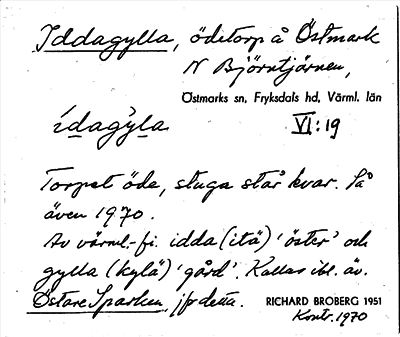 Iddagylla, ödetorp å Östmark
N Björntjärnen,
Östmarks sn, Fryksdals hd, Värml. län
ídagỳla VI:19
Torpet öde, stuga står kvar. Så
även 1970.
Av värml.-fi. idda (itä) 'öster' och
gylla (kylä) 'gård'. Kallas ibl. äv.
Östare Sparken, jfr detta. RICHARD BROBERG 1951
Kontr. 1970